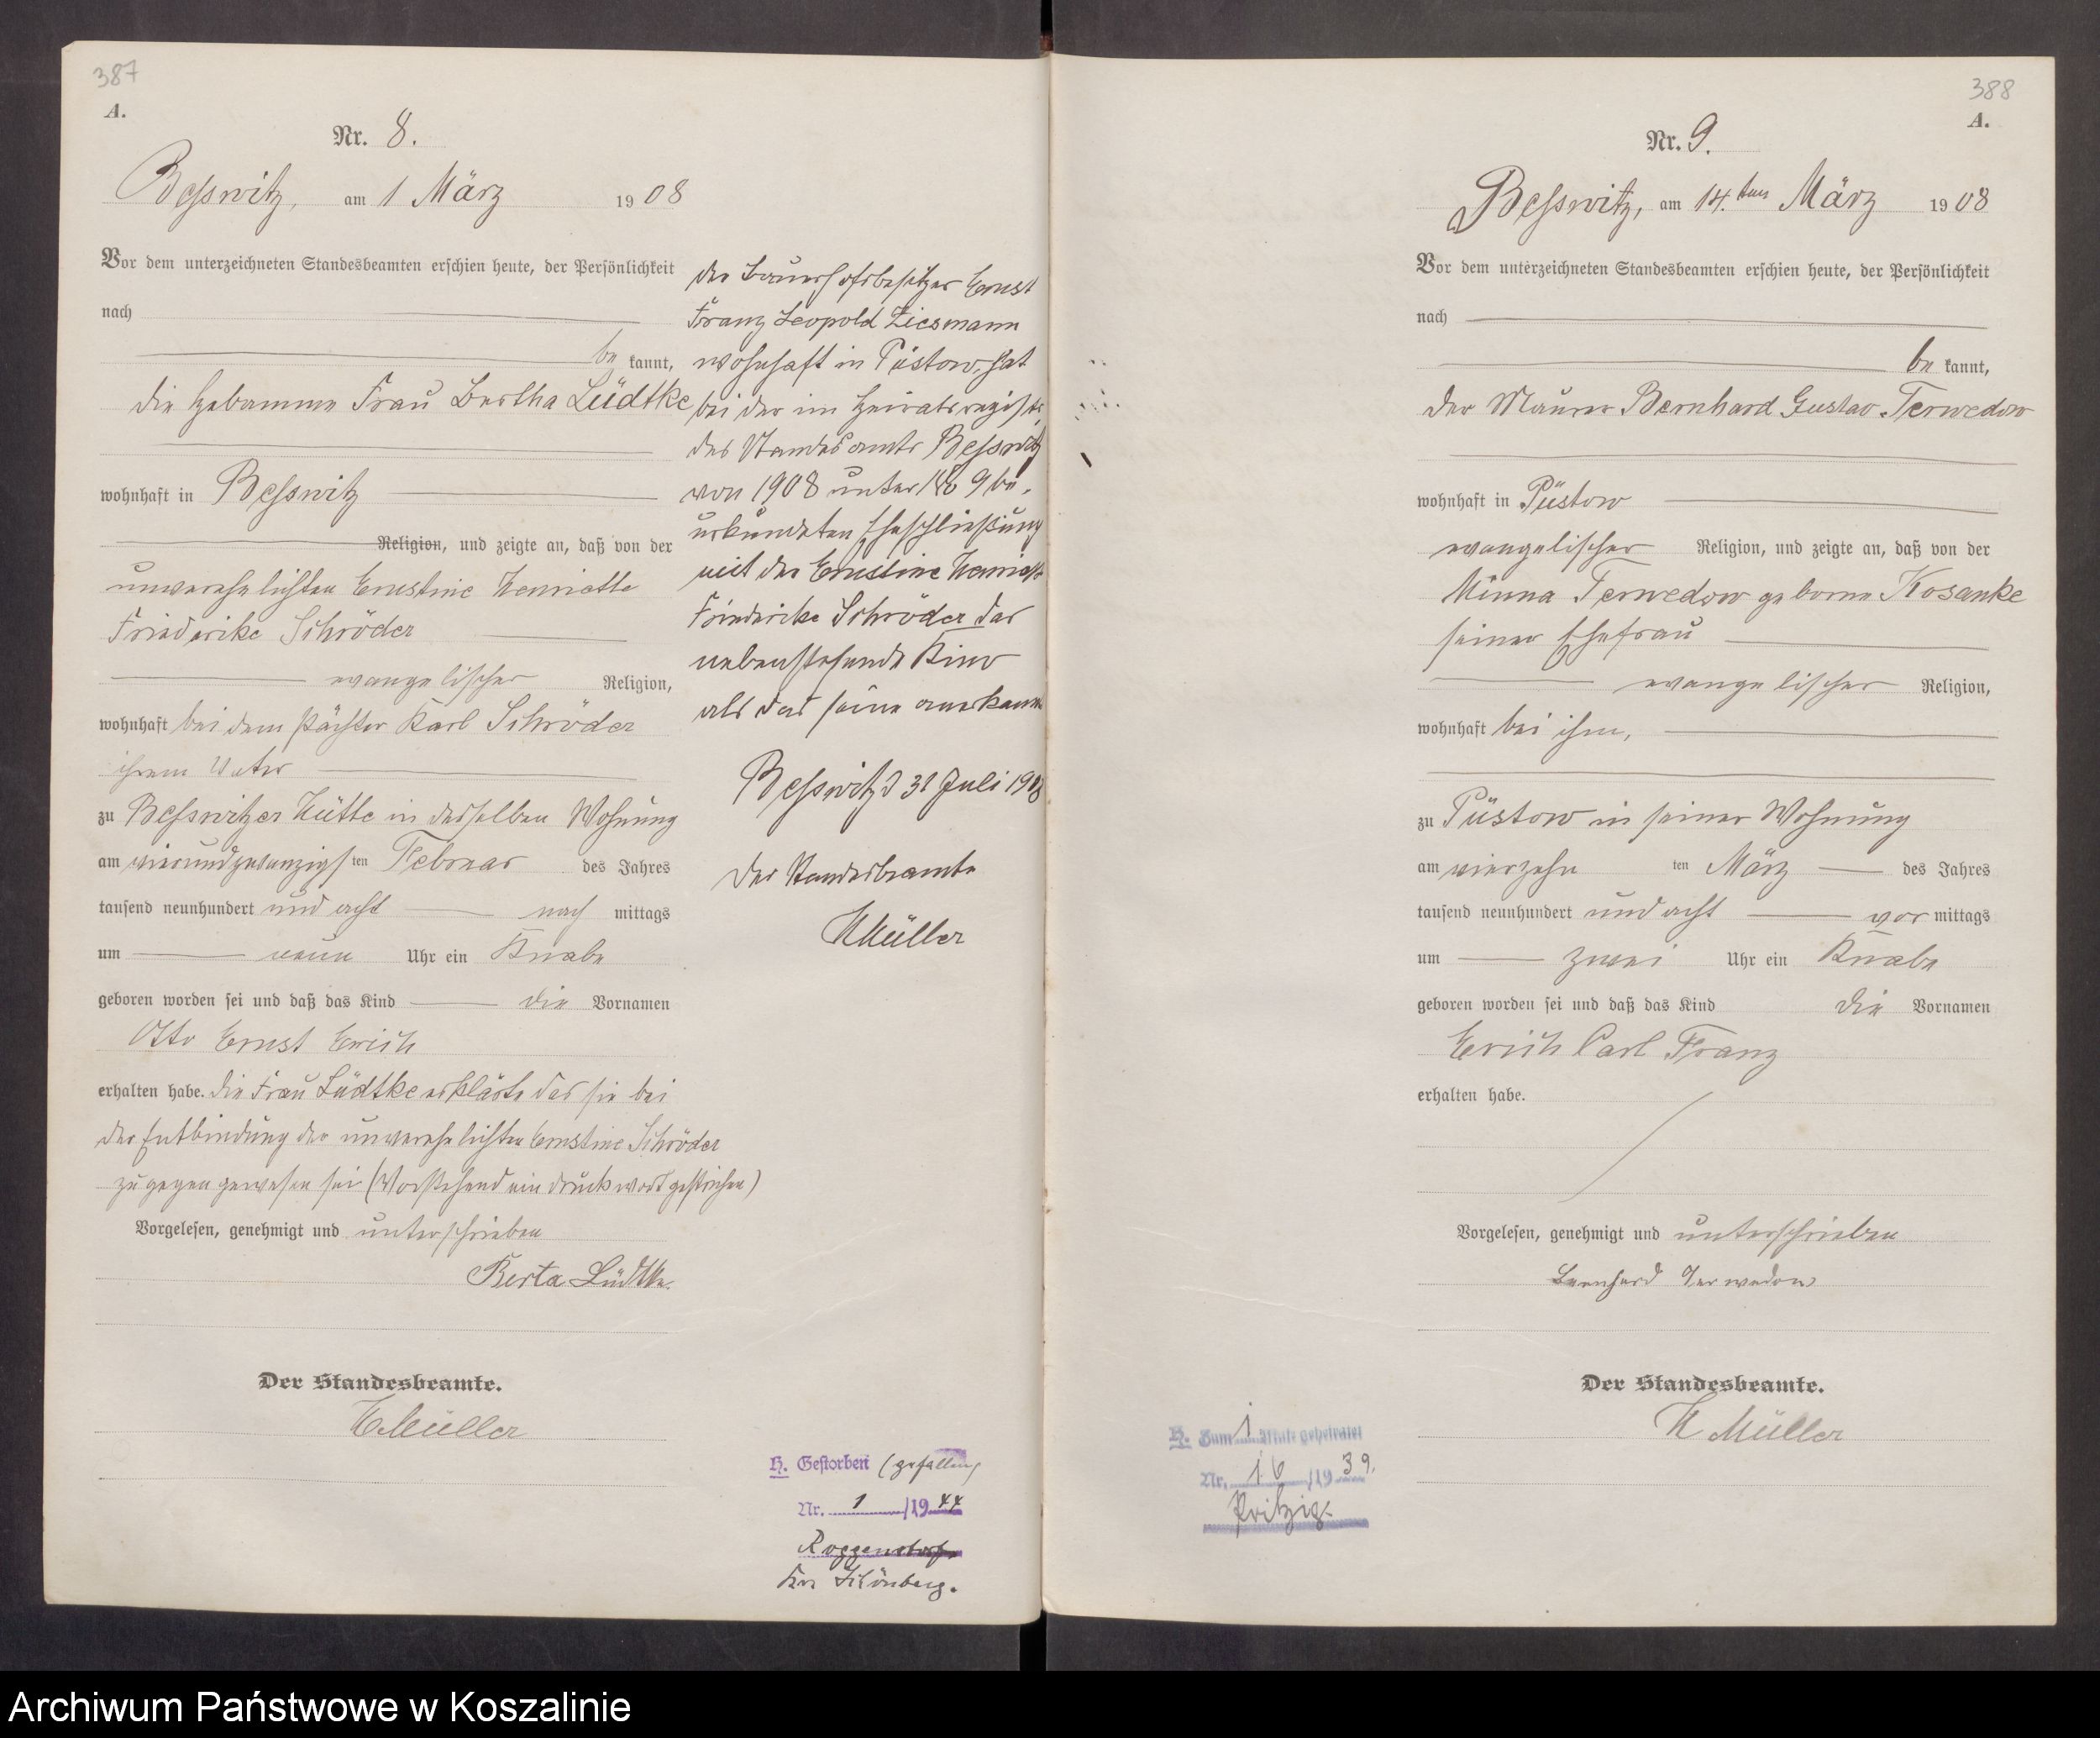 387
A.
Nr. 8.
Besswitz, am 1 März 1908
Vor dem unterzeichneten Standesbeamten erschien heute, der Persönlichkeit
nach
be kannt,
die Hebamme Frau Bertha Lüdtke
wohnhaft in Besswitz
Religion, und zeigte an, daß von der
unverehelichten Ernstine Henriette
Friederike Schröder
evangelischer Religion,
wohnhaft bei dem Pächter Karl Schröder
ihrem Vater
zu Besswitzer Hütte in desselben Wohnung
am vierundzwanzigsten Februar des Jahres
tausend neunhundert und acht nach mittags
um neun Uhr ein Knabe
geboren worden sei und daß das Kind die Vornamen
Otto Ernst Erich
erhalten habe. die Frau Lüdtke erklärte das sie bei
der Entbindung der unverehelichten Ernstine Schröder
zugegen gewesen sei (Vorstehend ein Druckwort gestrichen)
Vorgelesen, genehmigt und unterschrieben
Berta Lüdtke.
Der Standesbeamte.
H Müller
der Bauerhofsbesitzer Ernst
Franz Leopold Ziesmann
wohnhaft in Püstow, hat
bei der im Heiratsregister
des Standesamts Besswitz
von 1908 unter No 9 be-
urkundeten Eheschließung
mit der Ernstine Henriette
Friederike Schröder das
nebenstehende Kind
als das seine anerkannt
Besswitz d 31 Juli 1908
Der Standesbeamte
H Müller
H. Gestorben (gefallen)
Nr. 1 /1944
Roggendorf
Krs Schönberg.
388
A.
Nr. 9.
Besswitz, am 14.ten März 1908
Vor dem unterzeichneten Standesbeamten erschien heute, der Persönlichkeit
nach
be kannt,
der Maurer Bernhard Gustav Terwedow
wohnhaft in Püstow
evangelischer Religion, und zeigte an, daß von der
Minna Terwedow geborne Kosanke
seiner Ehefrau
evangelischer Religion,
wohnhaft bei ihm,
zu Püstow in seiner Wohnung
am vierzehn ten März des Jahres
tausend neunhundert und acht vor mittags
um zwei Uhr ein Knabe
geboren worden sei und daß das Kind die Vornamen
Erich Carl Franz
erhalten habe.
Vorgelesen, genehmigt und unterschrieben
Bernhard Terwedow
Der Standesbeamte.
H Müller
H. Zum 1 Male geheiratet
Nr. 16 /1939.
Pritzig.
Archiwum Państwowe w Koszalinie